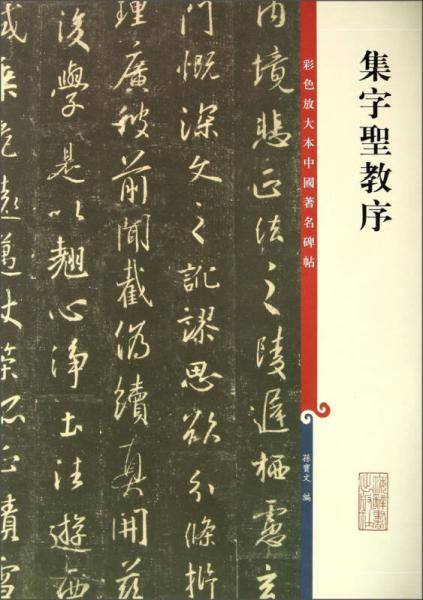 集字聖教序
彩色放大本中國著名碑帖
孫寶文 編
内境悲正法之陵遲栖慮玄
門慨深文之訛謬思欲分條析
理廣彼前聞截偽續真開茲
後學是以翹心淨土法遊西